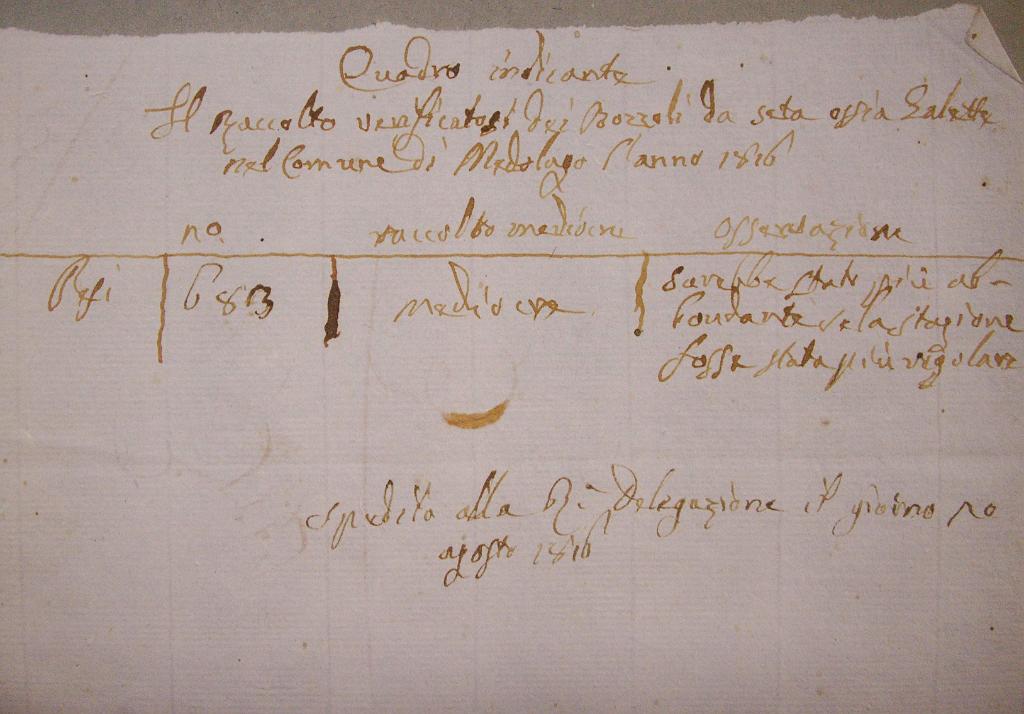 Quadro indicante
Il Raccolto verificatosi dei Bozzoli da seta ossia Galette
nel Comune di Medolago l'anno 1816
no. raccolto mediocre Osservazione
Pesi 683 mediocre sarebbe stato più ab-
bondante se la stagione
fosse stata più regolare
spedita alla R.a Delegazione il giorno 10
agosto 1816